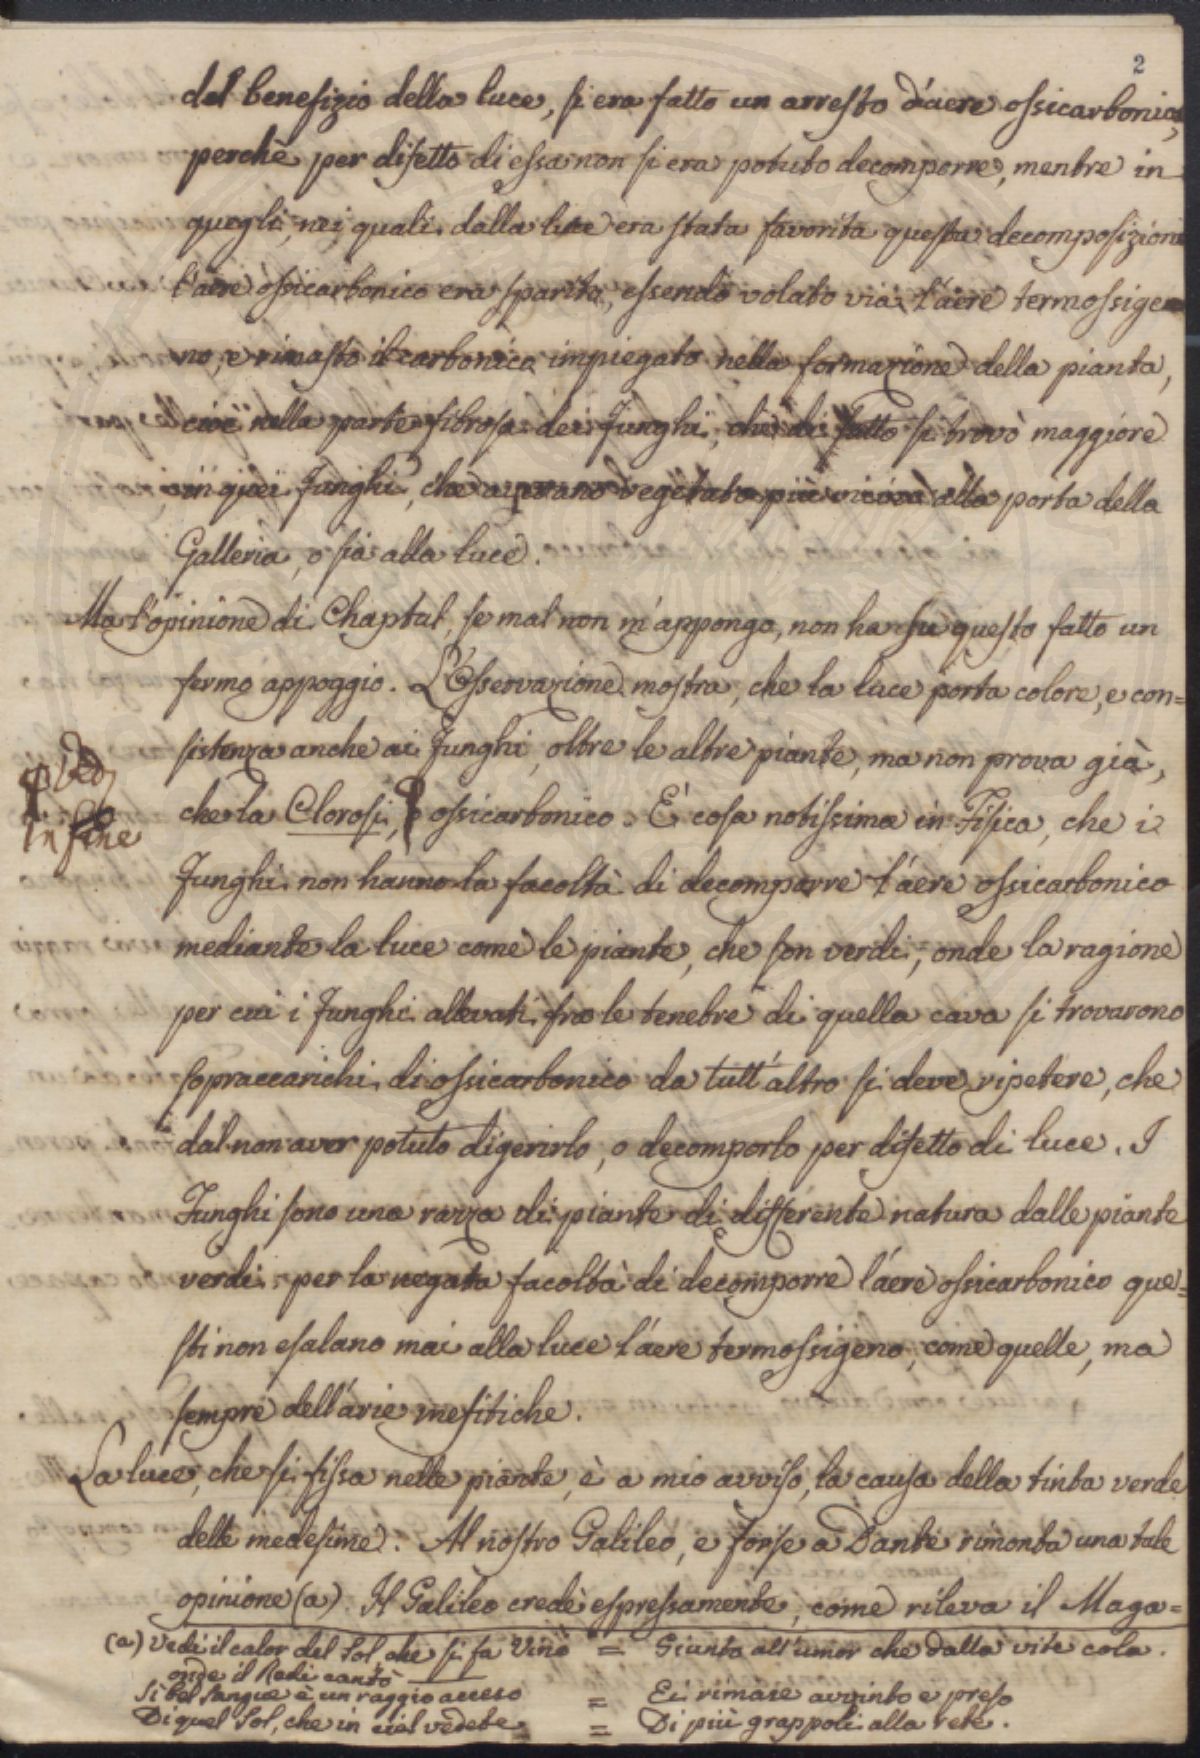 2
del benefizio della luce, si era fatto un arresto d'aere ossicarbonico,
perchè per difetto di essa non si era potuto decomporre, mentre in
quegli, nei quali dalla luce era stata favorita questa decomposizione
l'aere ossicarbonico era sparito, essendo volato via l'aere termossige=
no, e rimasto il carbonico impiegato nella formazione della pianta,
cioè nella parte fibrosa dei Funghi, che di fatto si trovò maggiore
in quei Funghi, che avevano vegetato più vicino alla porta della
Galleria, o sia alla luce.
Ma l'opinione di Chaptal, se mal non m'appongo, non ha su questo fatto un
fermo appoggio. L'Osservazione mostra, che la luce porta colore, e con=
sistenza anche ai Funghi, oltre le altre piante, ma non prova già,
Ved
in fine
che la Clorosi, ossicarbonico. È cosa notissima in Fisica, che i
Funghi non hanno la facoltà di decomporre l'aere ossicarbonico
mediante la luce come le piante, che son verdi; onde la ragione
per cui i Funghi allevati fra le tenebre di quella cava si trovarono
sopraccarichi di ossicarbonico da tutt'altro si deve ripetere, che
dal non aver potuto digerirlo, o decomporlo per difetto di luce. I
Funghi sono una razza di piante di differente natura dalle piante
verdi: per la negata facoltà di decomporre l'aere ossicarbonico que=
sti non esalano mai alla luce l'aere termossigeno, come quelle, ma
sempre dell'arie mefitiche.
La luce, che si fissa nelle piante, è a mio avviso, la causa della tinta verde
delle medesime. Al nostro Galileo, e forse a Dante rimonta una tale
opinione (a). Il Galileo credè espressamente, come rileva il Maga=
(a) Vedi il calor del Sol che si fa Vino = Giunto all'umor che dalla vite cola.
onde il Redi cantò
Sì bel sangue è un raggio acceso = Ei rimase avvinto e preso
Di quel Sol, che in ciel vedete = Di più grappoli alla rete.